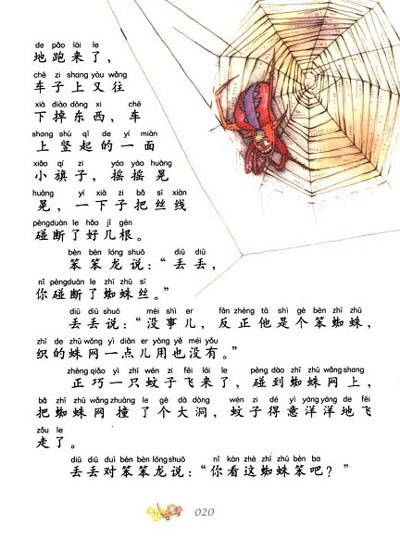 de pǎo lái le
地跑来了，
chē zi shang yòu wǎng
车子上又往
xià diào dōng xi chē
下掉东西，车
shang shù qǐ de yí miàn
上竖起的一面
xiǎo qí zi yáo yáo huàng
小旗子，摇摇晃
huàng yí xià zi bǎ sī xiàn
晃，一下子把丝线
pèngduàn le hǎo jǐ gēn
碰断了好几根。
bèn bèn lóng shuō diū diū
笨笨龙说：“丢丢，
nǐ pèngduàn le zhī zhū sī
你碰断了蜘蛛丝。”
diū diū shuō méi shì er fǎn zhèng tā shì gè bèn zhī zhū
丢丢说：“没事儿，反正他是个笨蜘蛛，
zhī de zhū wǎng yì diǎn er yòng yě méi yǒu
织的蛛网一点儿用也没有。”
zhèng qiǎo yì zhī wén zi fēi lái le pèng dào zhī zhū wǎng shang
正巧一只蚊子飞来了，碰到蜘蛛网上，
bǎ zhī zhū wǎng zhuàng le gè dà dòng wén zi dé yì yáng yáng de fēi
把蜘蛛网撞了个大洞，蚊子得意洋洋地飞
zǒu le
走了。
diū diū duì bèn bèn lóng shuō nǐ kàn zhè zhī zhū bèn ba
丢丢对笨笨龙说：“你看这蜘蛛笨吧？”
020